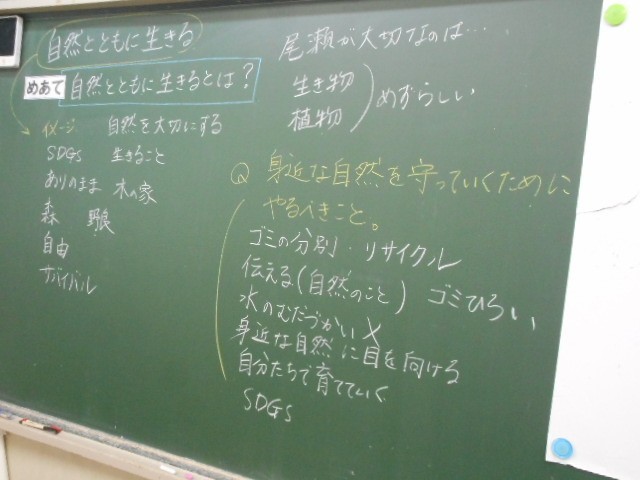 自然とともに生きる
めあて 自然とともに生きるとは?
イメージ 自然を大切にする
SDGs 生きること
ありのまま 木の家
森 野良
自由
サバイバル
尾瀬が大切なのは…
生き物
植物
めずらしい
Q 身近な自然を守っていくために
やるべきこと。
ゴミの分別・リサイクル
伝える(自然のこと) ゴミひろい
水のむだづかい×
身近な自然に目を向ける
自分たちで育てていく
SDGs